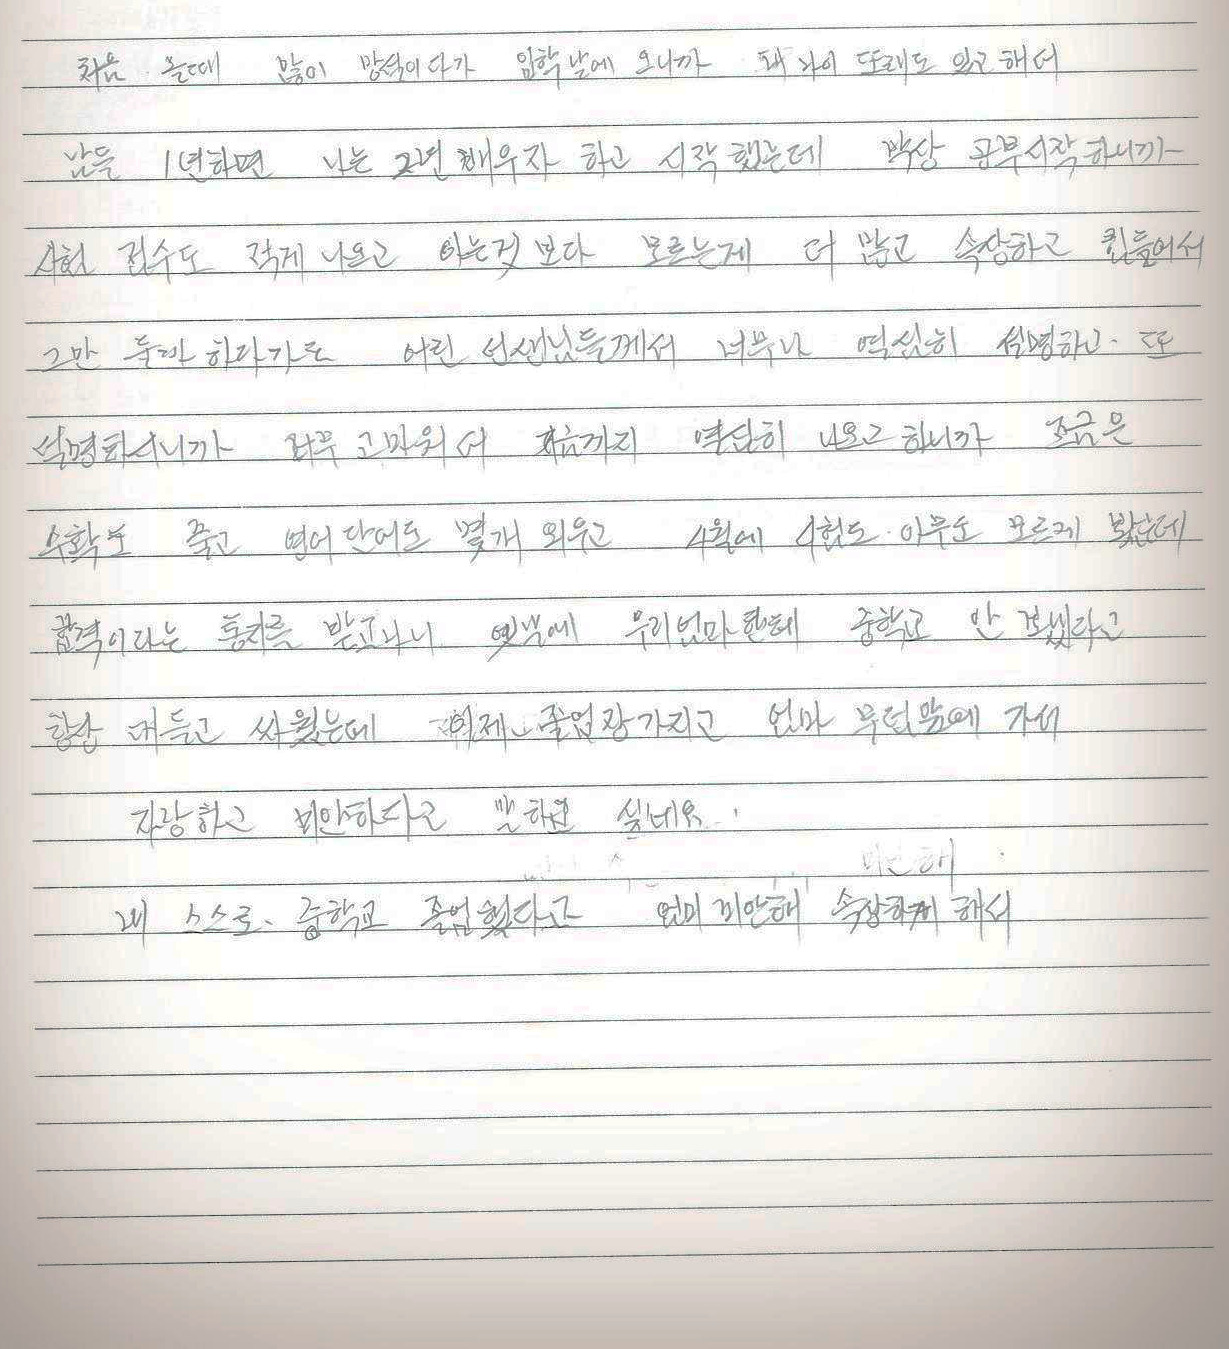 처음 올때 많이 망석이다가 입학 날에 오니까 돼 나이 또래도 있고 해서
남들 1년하면 나는 2년 배우자 하고 시작했는데 막상 공부시작하니까
시험 점수도 적게 나오고 아는것 보다 모르는게 더 많고 속상하고 힘들어서
그만 둘까 하다가도 어린 선생님들께서 너무나 열심히 설명하고 또
설명하시니까 너무 고마워서 지금까지 열심히 나오고 하니까 조금은
수학도 풀고 영어 단어도 몇개 외우고 4월에 시험도 아무도 모르게 봤는데
합격이라는 통지를 받고나니 옛날에 우리엄마한테 중학교 안 보냈다고
항상 대들고 싸웠는데 이제 졸업장가지고 엄마 무덤앞에 가서
자랑하고 미안하다고 말하고 싶네요.
내 스스로 중학교 졸업했다고 엄마 미안해 속상하게 해서